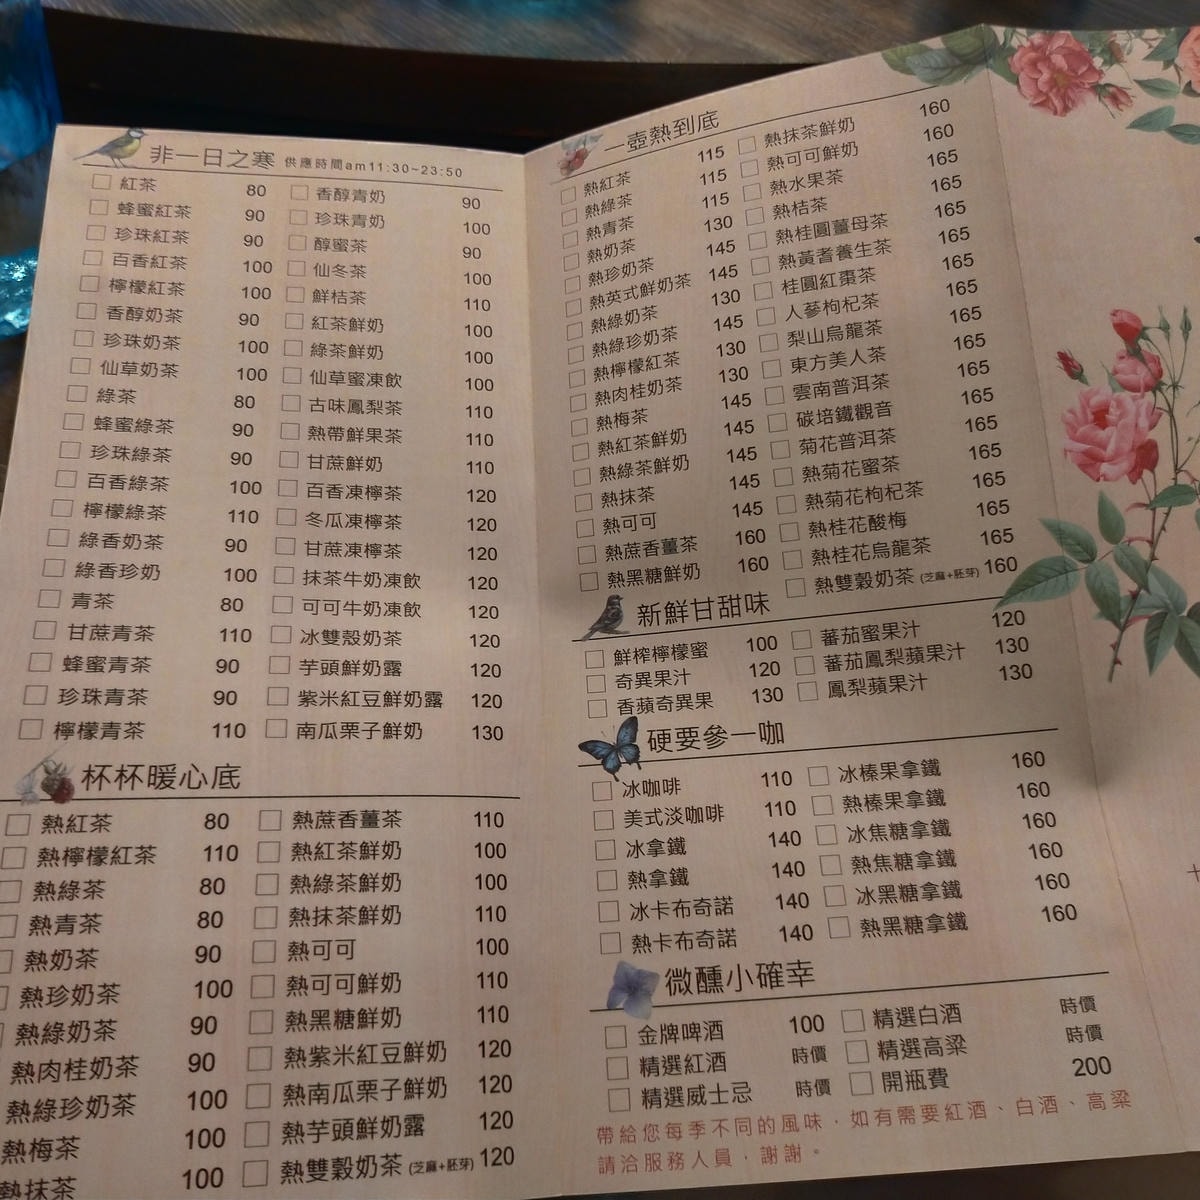 非一日之寒 供應時間am11:30~23:50
紅茶 80
蜂蜜紅茶 90
珍珠紅茶 90
百香紅茶 100
檸檬紅茶 100
香醇奶茶 90
珍珠奶茶 100
仙草奶茶 100
綠茶 80
蜂蜜綠茶 90
珍珠綠茶 90
百香綠茶 100
檸檬綠茶 110
綠香奶茶 90
綠香珍奶 100
青茶 80
甘蔗青茶 110
蜂蜜青茶 90
珍珠青茶 90
檸檬青茶 110
香醇青奶 90
珍珠青奶 100
醇蜜茶 90
仙冬茶 100
鮮桔茶 110
紅茶鮮奶 100
綠茶鮮奶 100
仙草蜜凍飲 100
古味鳳梨茶 110
熱帶鮮果茶 110
甘蔗鮮奶 110
百香凍檸茶 120
冬瓜凍檸茶 120
甘蔗凍檸茶 120
抹茶牛奶凍飲 120
可可牛奶凍飲 120
冰雙殼奶茶 120
芋頭鮮奶露 120
紫米紅豆鮮奶露 120
南瓜栗子鮮奶 130
杯杯暖心底
熱紅茶 80
熱檸檬紅茶 110
熱綠茶 80
熱青茶 80
熱奶茶 90
熱珍奶茶 100
熱綠奶茶 90
熱肉桂奶茶 90
熱綠珍奶茶 100
熱梅茶 100
熱抹茶 100
熱蔗香薑茶 110
熱紅茶鮮奶 100
熱綠茶鮮奶 100
熱抹茶鮮奶 110
熱可可 100
熱可可鮮奶 110
熱黑糖鮮奶 110
熱紫米紅豆鮮奶 120
熱南瓜栗子鮮奶 120
熱芋頭鮮奶露 120
熱雙穀奶茶 (芝麻+胚芽) 120
一壺熱到底
熱紅茶 115
熱綠茶 115
熱青茶 115
熱奶茶 130
熱珍奶茶 145
熱英式鮮奶茶 145
熱綠奶茶 130
熱綠珍奶茶 145
熱檸檬紅茶 130
熱肉桂奶茶 130
熱梅茶 145
熱紅茶鮮奶 145
熱綠茶鮮奶 145
熱抹茶 145
熱可可 145
熱蔗香薑茶 160
熱黑糖鮮奶 160
熱抹茶鮮奶 160
熱可可鮮奶 160
熱水果茶 165
熱桔茶 165
熱桂圓薑母茶 165
熱黃耆養生茶 165
桂圓紅棗茶 165
人蔘枸杞茶 165
梨山烏龍茶 165
東方美人茶 165
雲南普洱茶 165
碳培鐵觀音 165
菊花普洱茶 165
熱菊花蜜茶 165
熱菊花枸杞茶 165
熱桂花酸梅 165
熱桂花烏龍茶 165
熱雙穀奶茶 (芝麻+胚芽) 160
新鮮甘甜味
鮮榨檸檬蜜 100
奇異果汁 120
香蘋奇異果 130
蕃茄蜜果汁 120
蕃茄鳳梨蘋果汁 130
鳳梨蘋果汁 130
硬要參一咖
冰咖啡 110
美式淡咖啡 110
冰拿鐵 140
熱拿鐵 140
冰卡布奇諾 140
熱卡布奇諾 140
冰榛果拿鐵 160
熱榛果拿鐵 160
冰焦糖拿鐵 160
熱焦糖拿鐵 160
冰黑糖拿鐵 160
熱黑糖拿鐵 160
微醺小確幸
金牌啤酒 100
精選紅酒 時價
精選威士忌 時價
精選白酒 時價
精選高粱 時價
開瓶費 200
帶給您每季不同的風味，如有需要紅酒、白酒、高粱
請洽服務人員，謝謝。